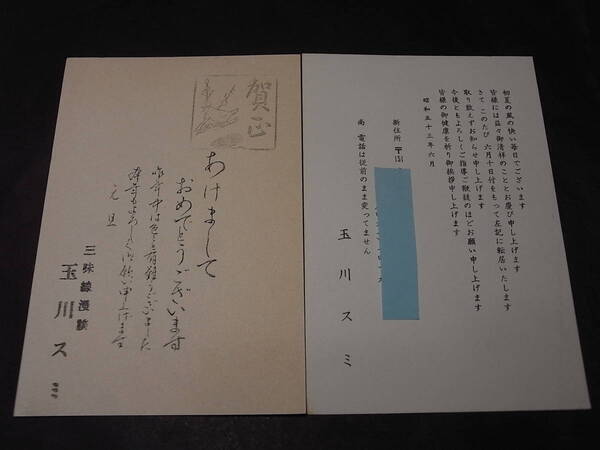 賀正
あけまして
おめでとうございます
昨年中は色々有難うございました
本年もよろしくお願い申し上げます
元旦
三味線漫談
玉川スミ
初夏の風の快い毎日でございます
皆様には益々御清祥のこととお慶び申し上げます
さて このたび 六月十日付をもって左記に転居いたします
取り敢えずお知らせ申し上げます
今後ともよろしくご指導ご鞭撻のほどお願い申し上げます
皆様の御健康を祈り御挨拶申し上げます
昭和五十三年六月
新住所 〒151
尚 電話は従前のまま変ってません
玉川スミ